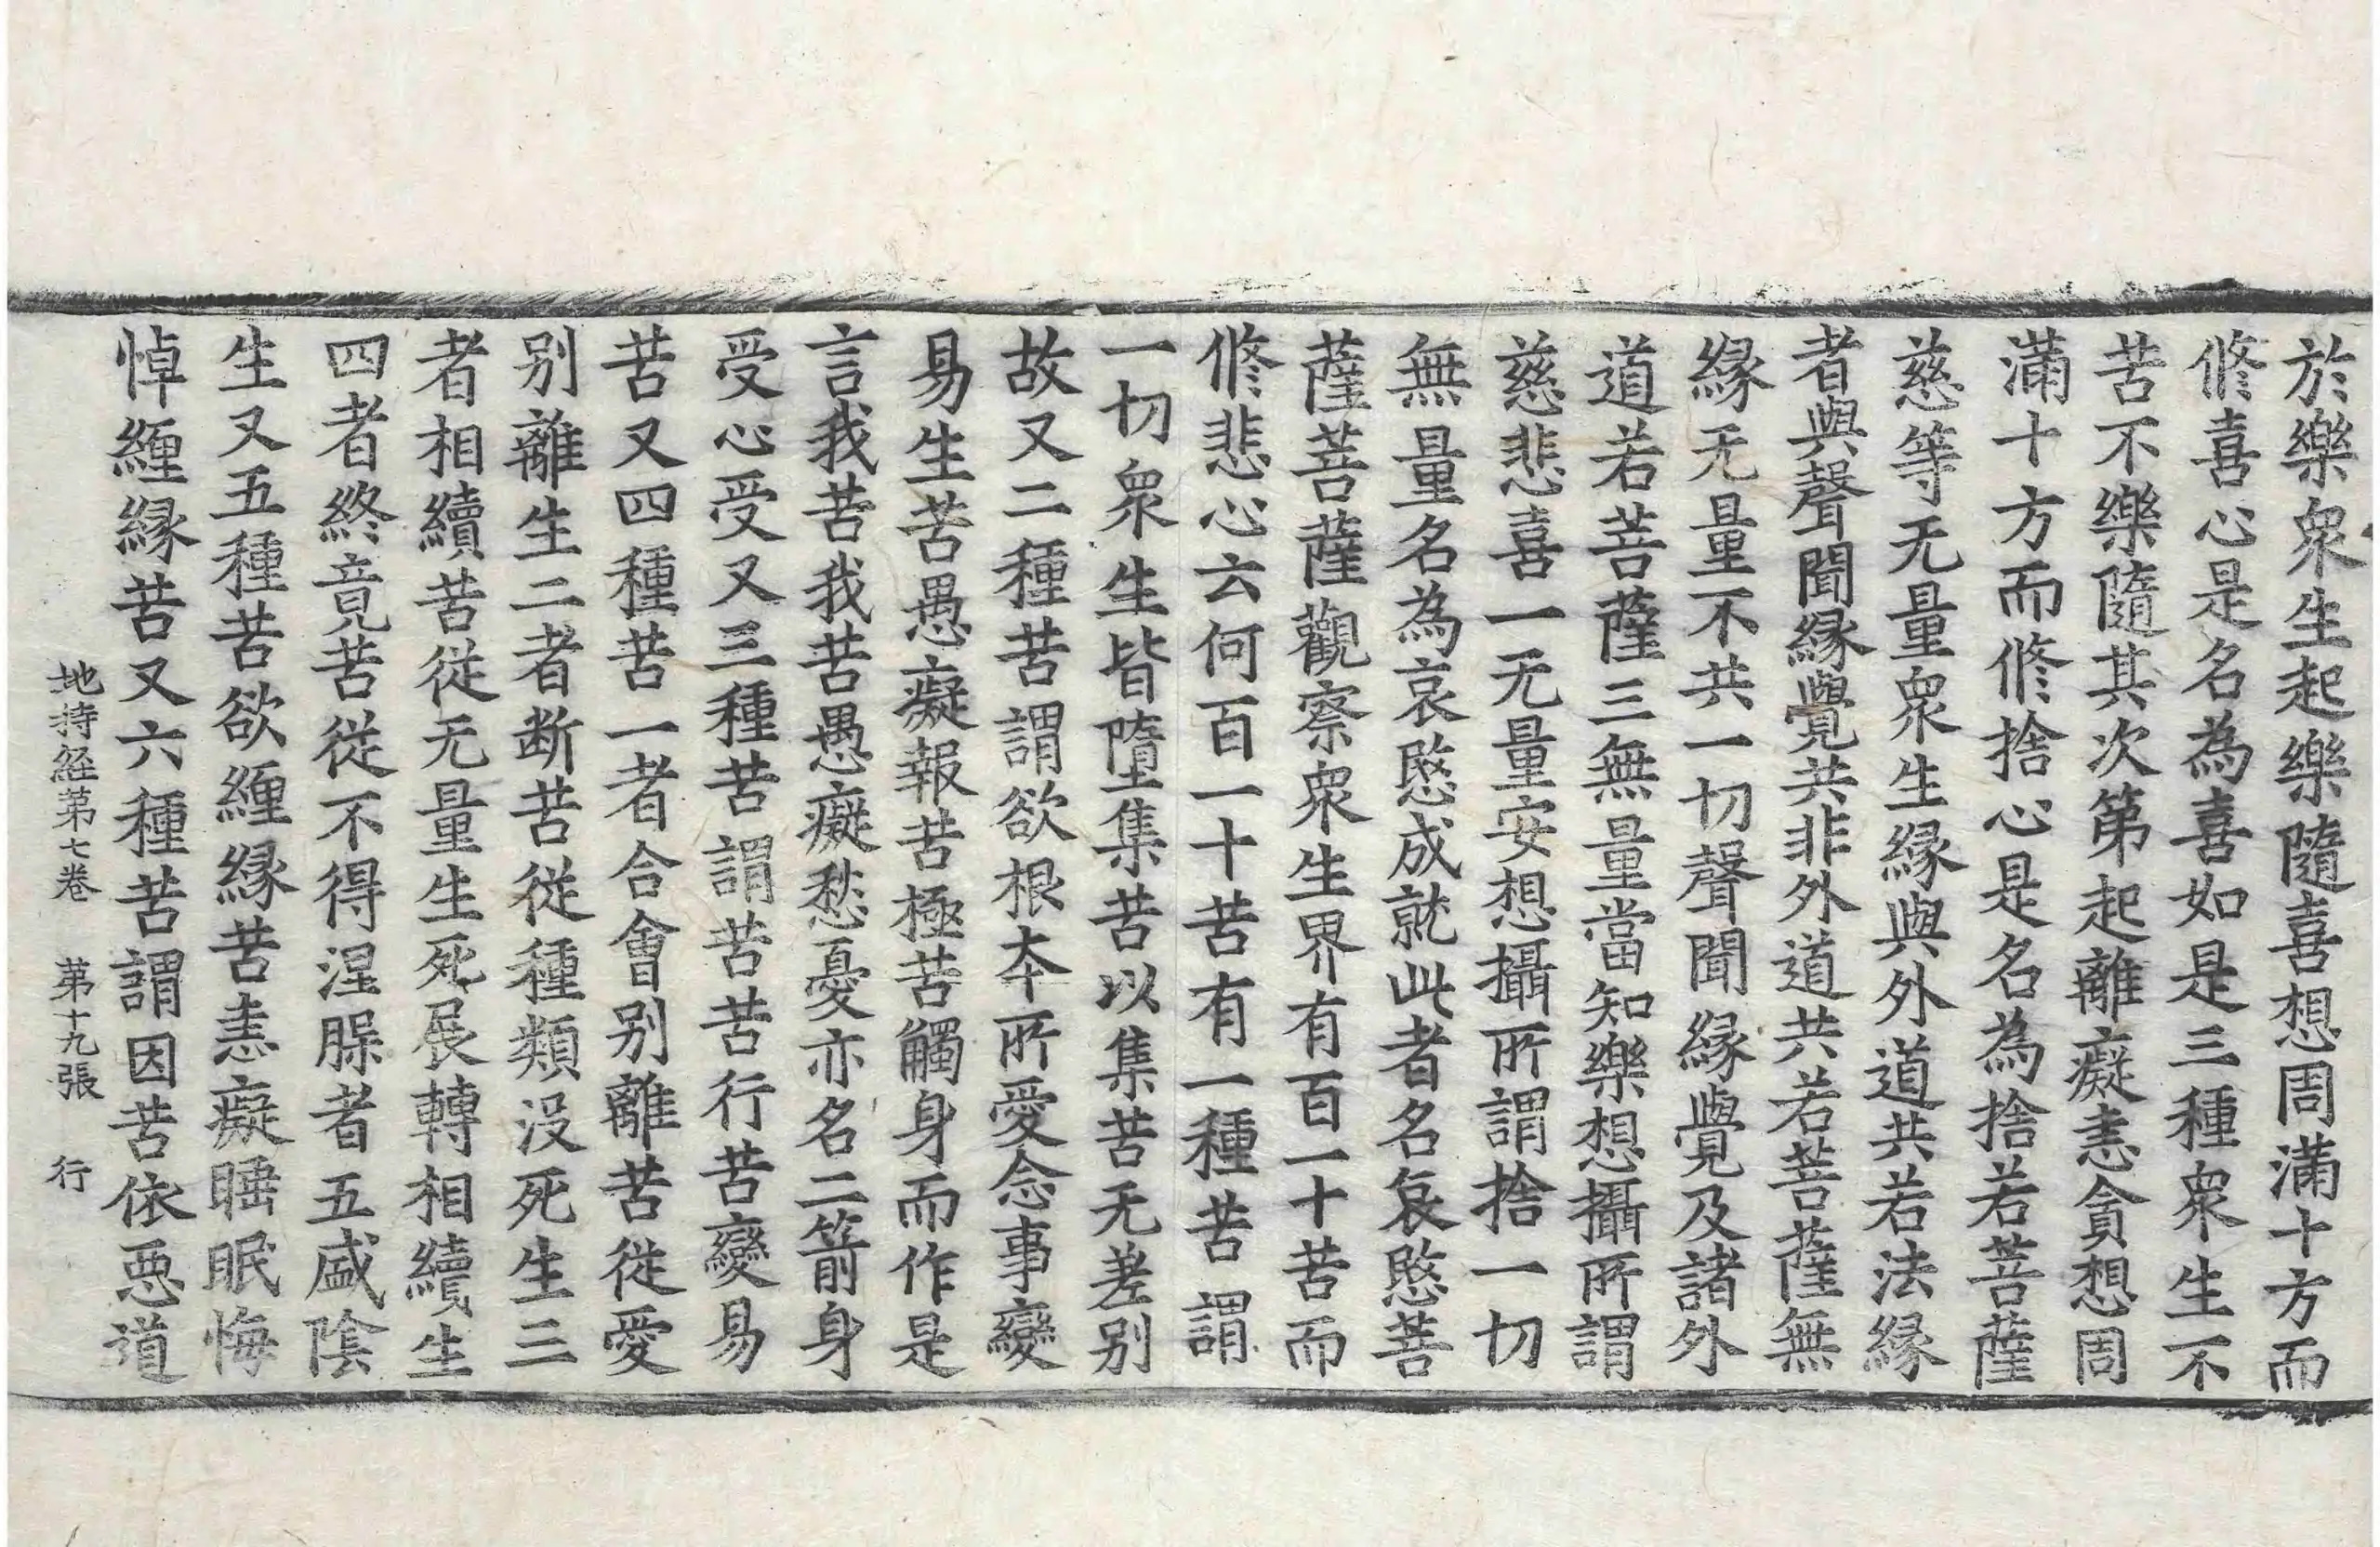 於樂衆生起樂隨喜想周滿十方而
修喜心是名為喜如是三種衆生不
苦不樂隨其次第起離癡恚貪想周
滿十方而修捨心是名為捨若菩薩
慈等无量衆生緣與外道共若法緣
者與聲聞緣覺共非外道共若菩薩無
緣无量不共一切聲聞緣覺及諸外
道若菩薩三無量當知樂想攝所謂
慈悲喜一无量安想攝所謂捨一切
無量名為哀愍成就此者名哀愍菩
薩菩薩觀察衆生界有百一十苦而
修悲心云何百一十苦有一種苦謂
一切衆生皆墮集苦以集苦无差别
故又二種苦謂欲根本所愛念事變
易生苦愚癡報苦極苦觸身而作是
言我苦我苦愚癡愁憂亦名二箭身
受心受又三種苦謂苦苦行苦變易
苦又四種苦一者合會别離苦從愛
别離生二者断苦從種類没死生三
者相續苦從无量生死展轉相續生
四者終竟苦從不得涅槃者五盛陰
生又五種苦欲纏緣苦恚癡睡眠悔
悼纏緣苦又六種苦謂因苦依惡道
地持経第七卷 第十九張 行